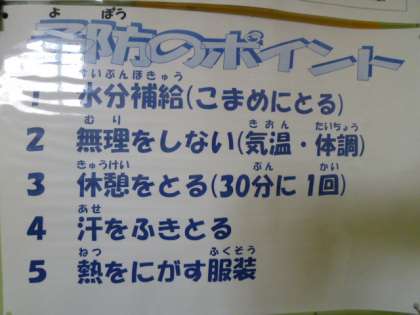 よ ぼう
予防のポイント
すいぶんほきゅう
1 水分補給(こまめにとる)
むり きおん たいちょう
2 無理をしない(気温・体調)
きゅうけい ぷん かい
3 休憩をとる(30分に1回)
あせ
4 汗をふきとる
ねつ ふくそう
5 熱をにがす服装